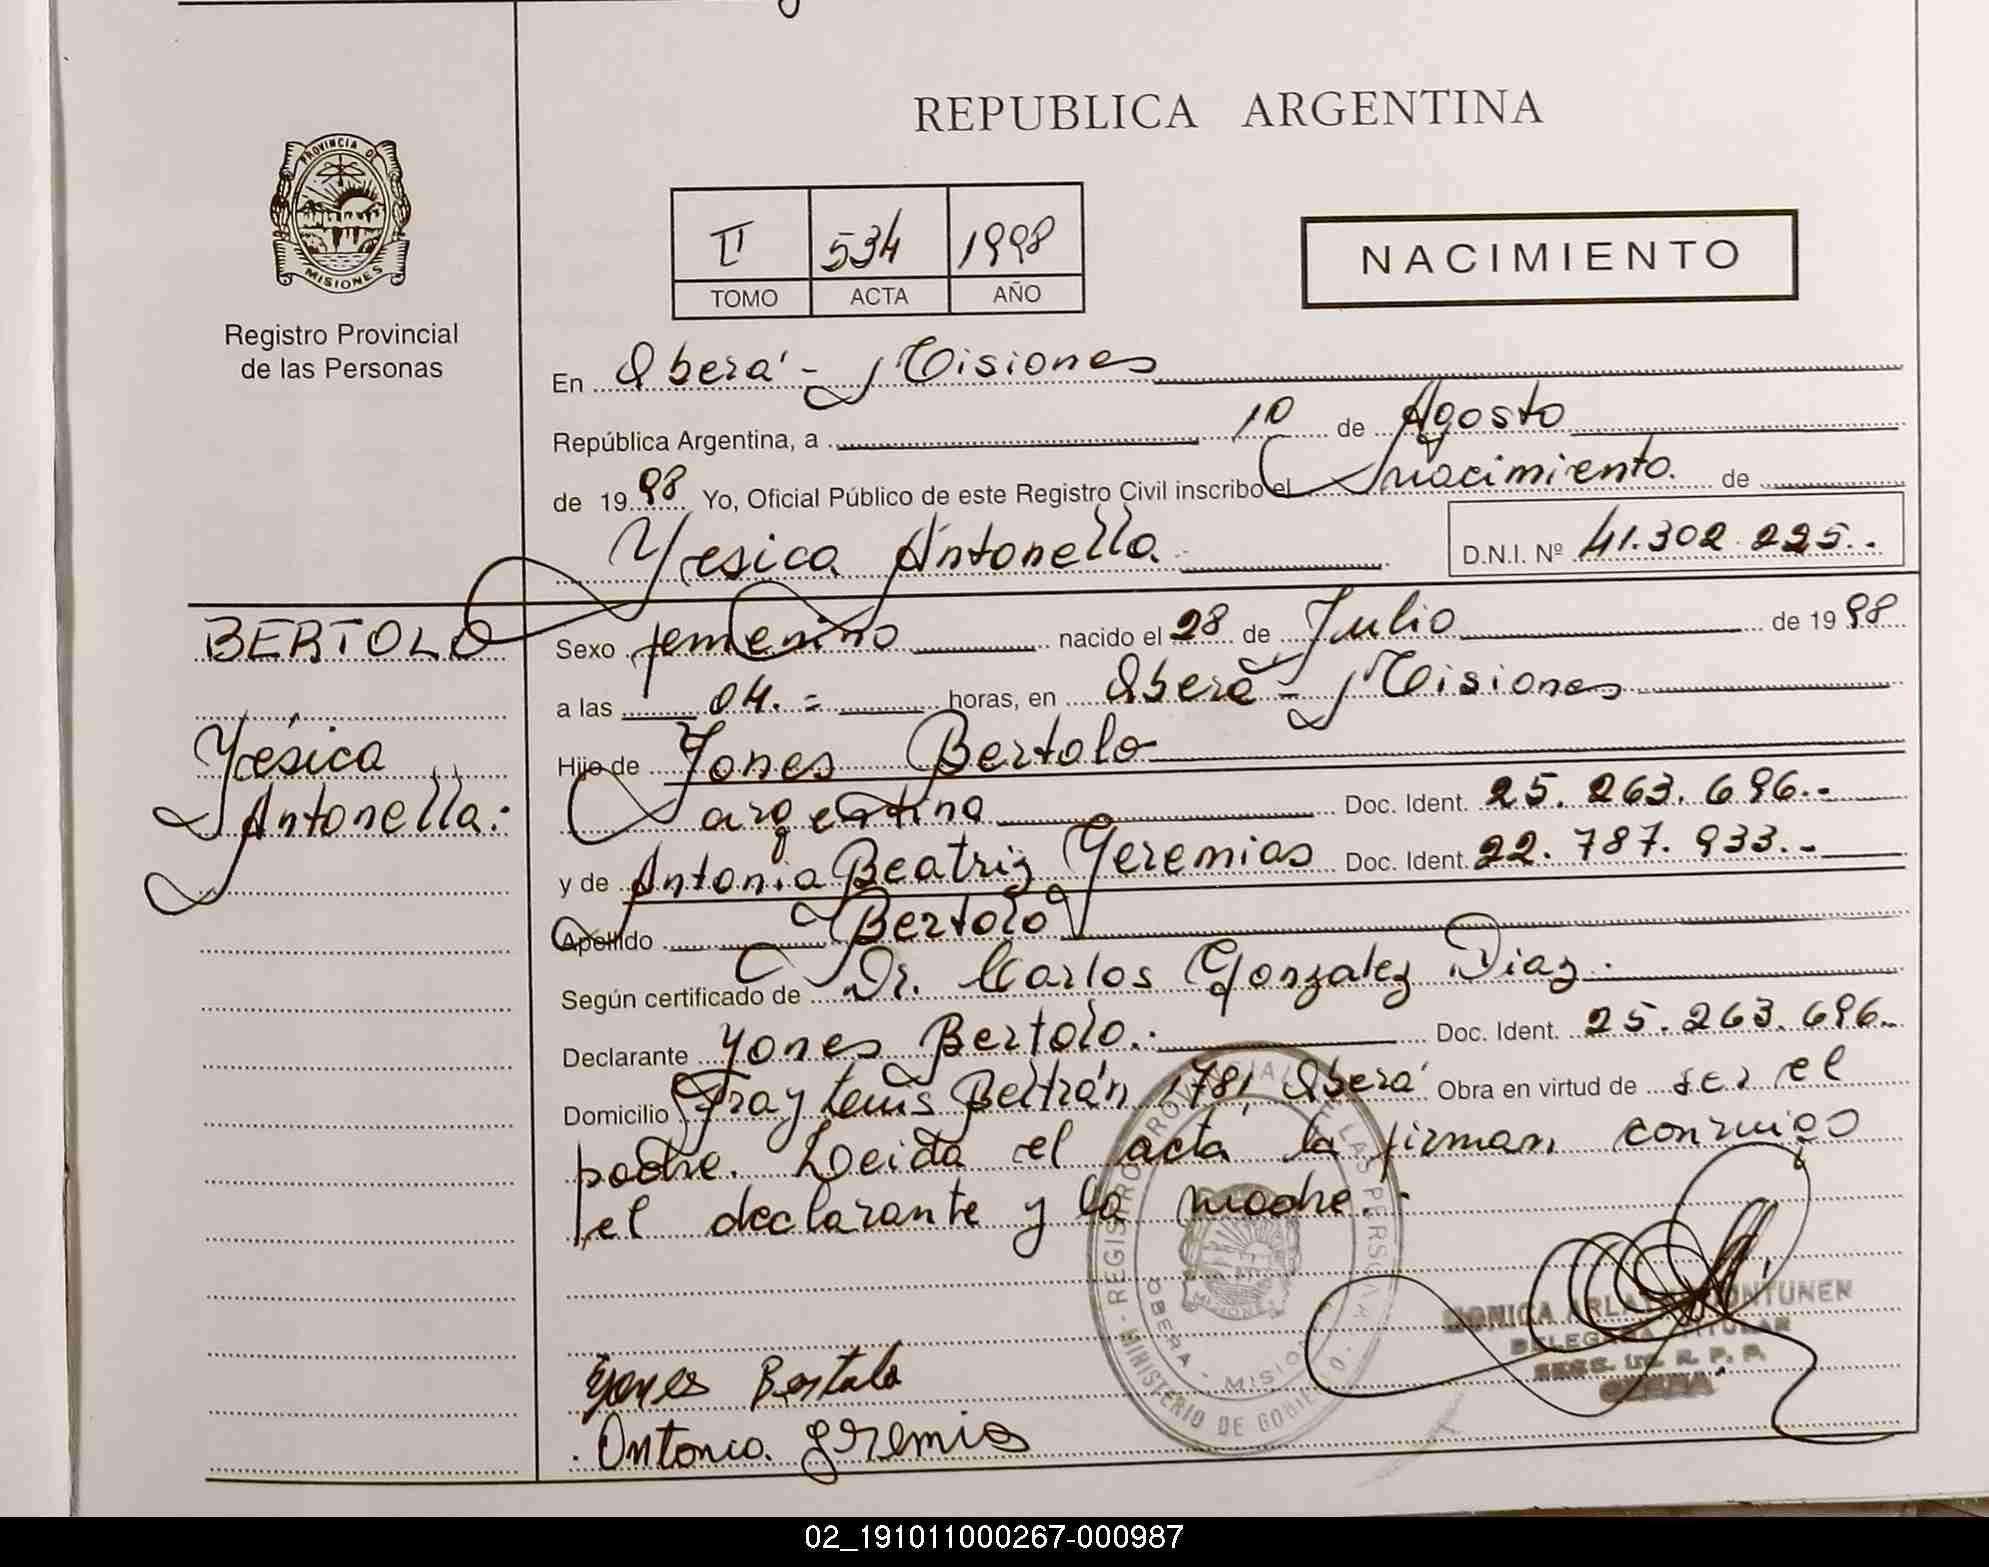 REPUBLICA ARGENTINA
PROVINCIA DE
MISIONES
Registro Provincial
de las Personas
II 534 1998
TOMO ACTA AÑO
NACIMIENTO
En Oberá - Misiones
República Argentina, a 10 de Agosto
de 1998 Yo, Oficial Público de este Registro Civil inscribo el nacimiento. de
Yesica Antonella D.N.I. Nº 41.302.225..
BERTOLO
Yésica
Antonella:
Sexo femenino nacido el 28 de Julio de 1998
a las 04.= horas, en Oberá - Misiones
Hijo de Yones Bertolo
argentino Doc. Ident. 25.263.696.-
y de Antonia Beatriz Yeremias Doc. Ident. 22.787.933.-
Apellido Bertolo
Según certificado de Dr. Carlos Gonzalez Diaz.
Declarante Yones Bertolo.- Doc. Ident. 25.263.696.-
Domicilio Fray Luis Beltrán 1781, Oberá Obra en virtud de ser el
padre. Leida el acta la firman conmigo
el declarante y la madre.-
REGISTRO PROVINCIAL DE LAS PERSONAS
MINISTERIO DE GOBIERNO
OBERA - MISIONES
MONICA
DELEGADA TITULAR
R. P. P.
OBERA
Yones Bertolo
Antonia
02_191011000267-000987